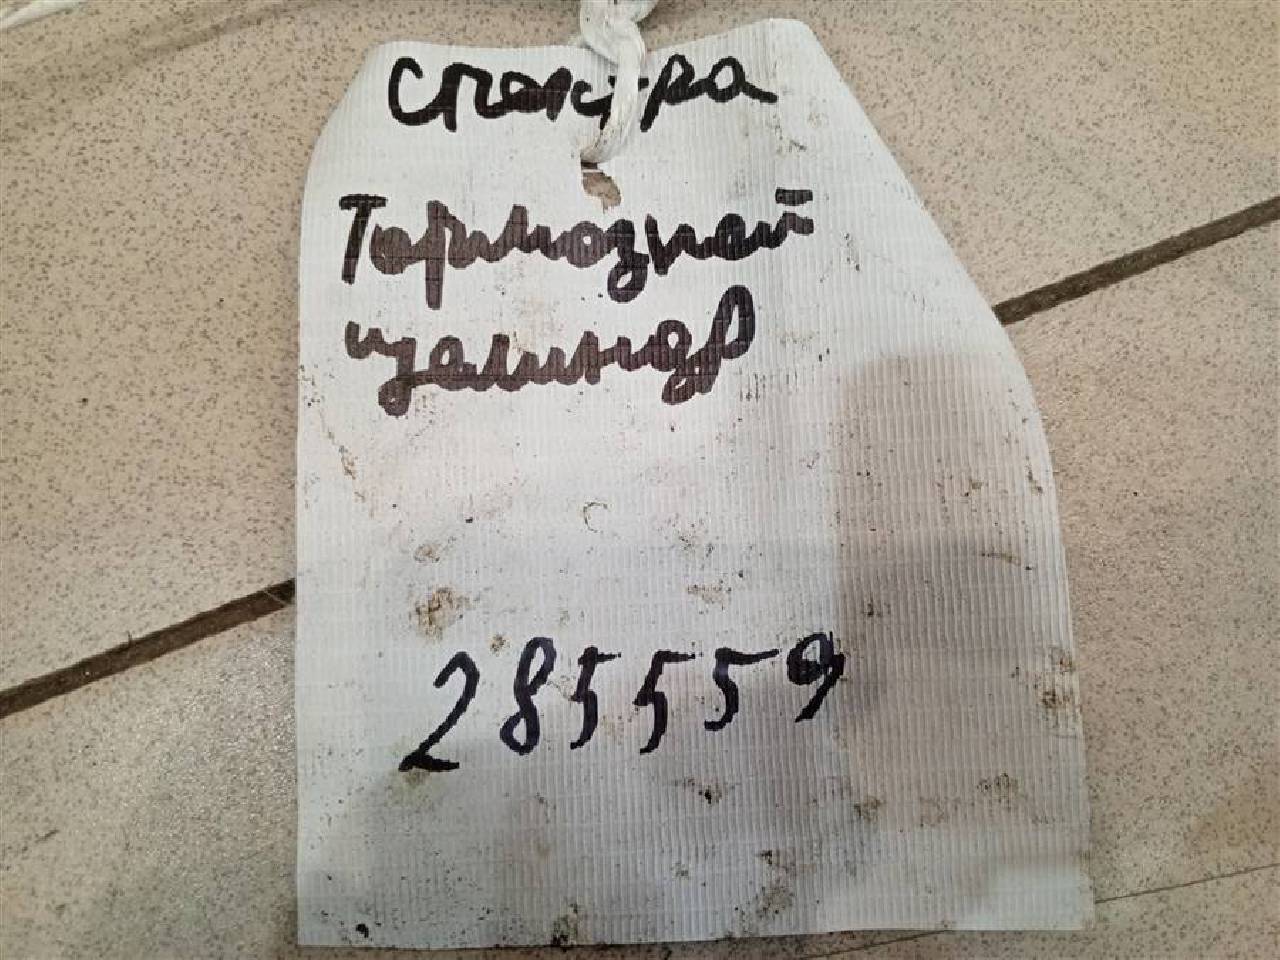 спектра
Тормозной
цилиндр
285559